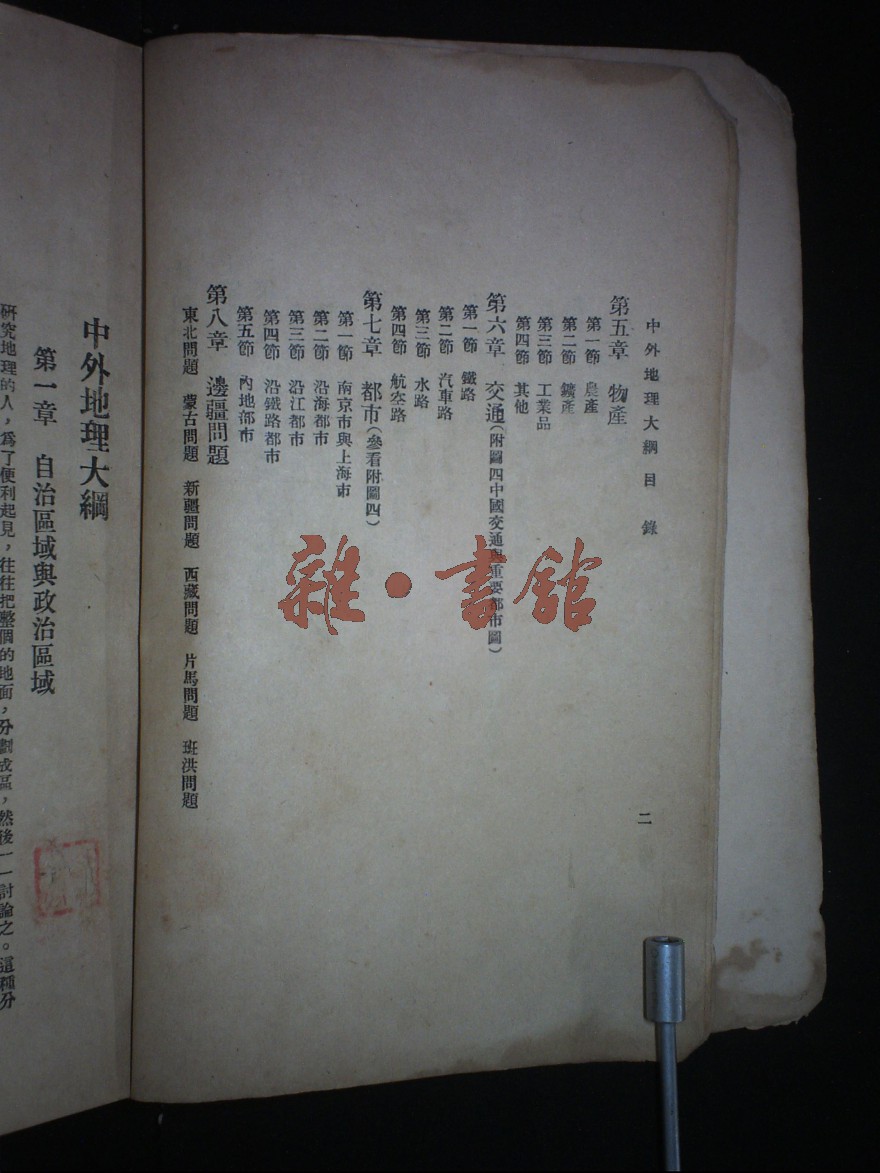 中外地理大綱目錄
二
第五章　物產
第一節　農產
第二節　鑛產
第三節　工業品
第四節　其他
第六章　交通(附圖四中國交通與重要都市圖)
第一節　鐵路
第二節　汽車路
第三節　水路
第四節　航空路
第七章　都市(參看附圖四)
第一節　南京市與上海市
第二節　沿海都市
第三節　沿江都市
第四節　沿鐵路都市
第五節　內地都市
第八章　邊疆問題
東北問題　蒙古問題　新疆問題　西藏問題　片馬問題　班洪問題
中外地理大綱
第一章　自治區域與政治區域
研究地理的人，爲了便利起見，往往把整個的地面，分劃成區，然後一一討論之。這種分
雜·書館